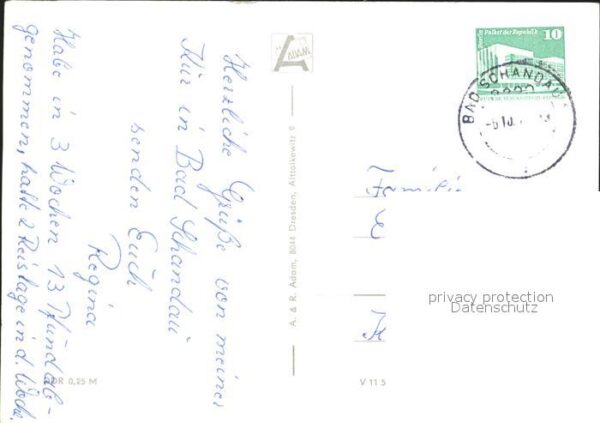 Herzliche Grüße von meiner
Kur in Bad Schandau
senden Euch
Regina
Habe in 3 Wochen 13 Pfund ab-
genommen, hatte 2 Reistage in d. Woche.
ADAM
A. & R. Adam, 8044 Dresden, Altlockwitz 9
V 11 5
0,25 M
Palast der Republik
10
BAD SCHANDAU
Familie
privacy protection
Datenschutz